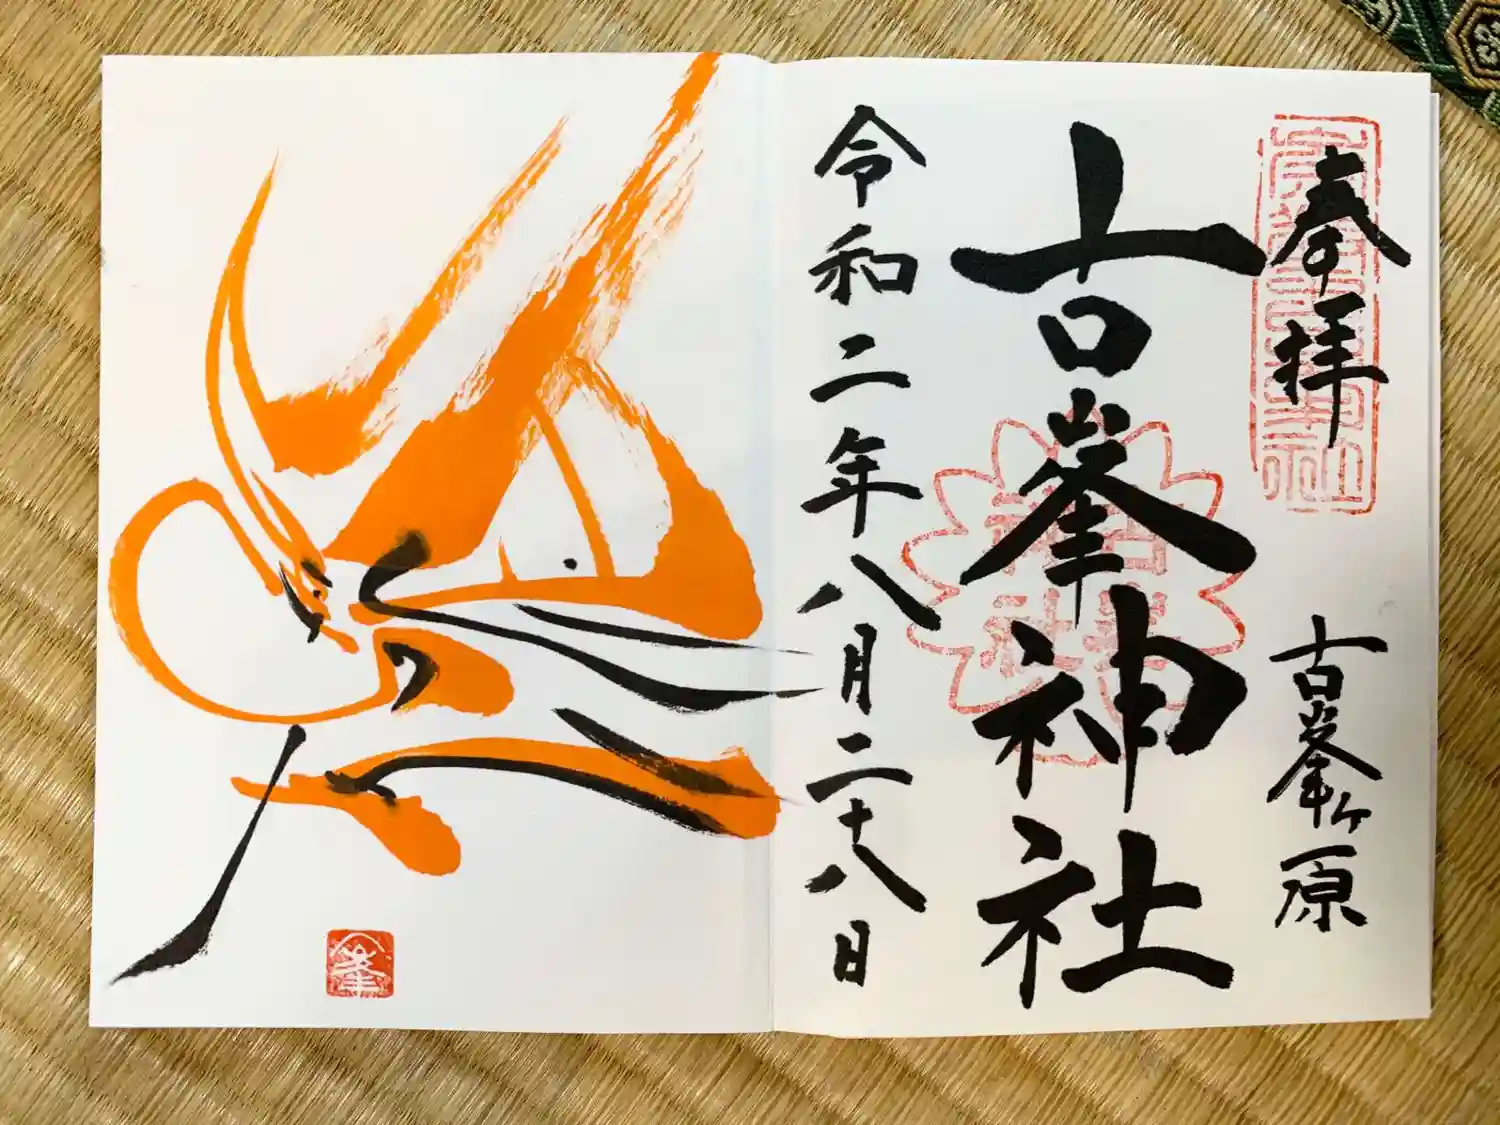 奉拝
古峯ヶ原
古峯神社
令和二年八月二十八日
峯